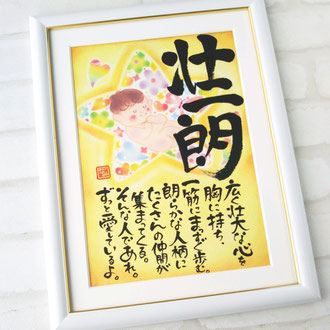 壮一朗
広く壮大な心を
胸に持ち、
一筋にまっすぐ歩む。
朗らかな人柄に
たくさんの仲間が
集まってくる。
そんな人であれ。
ずっと愛しているよ。